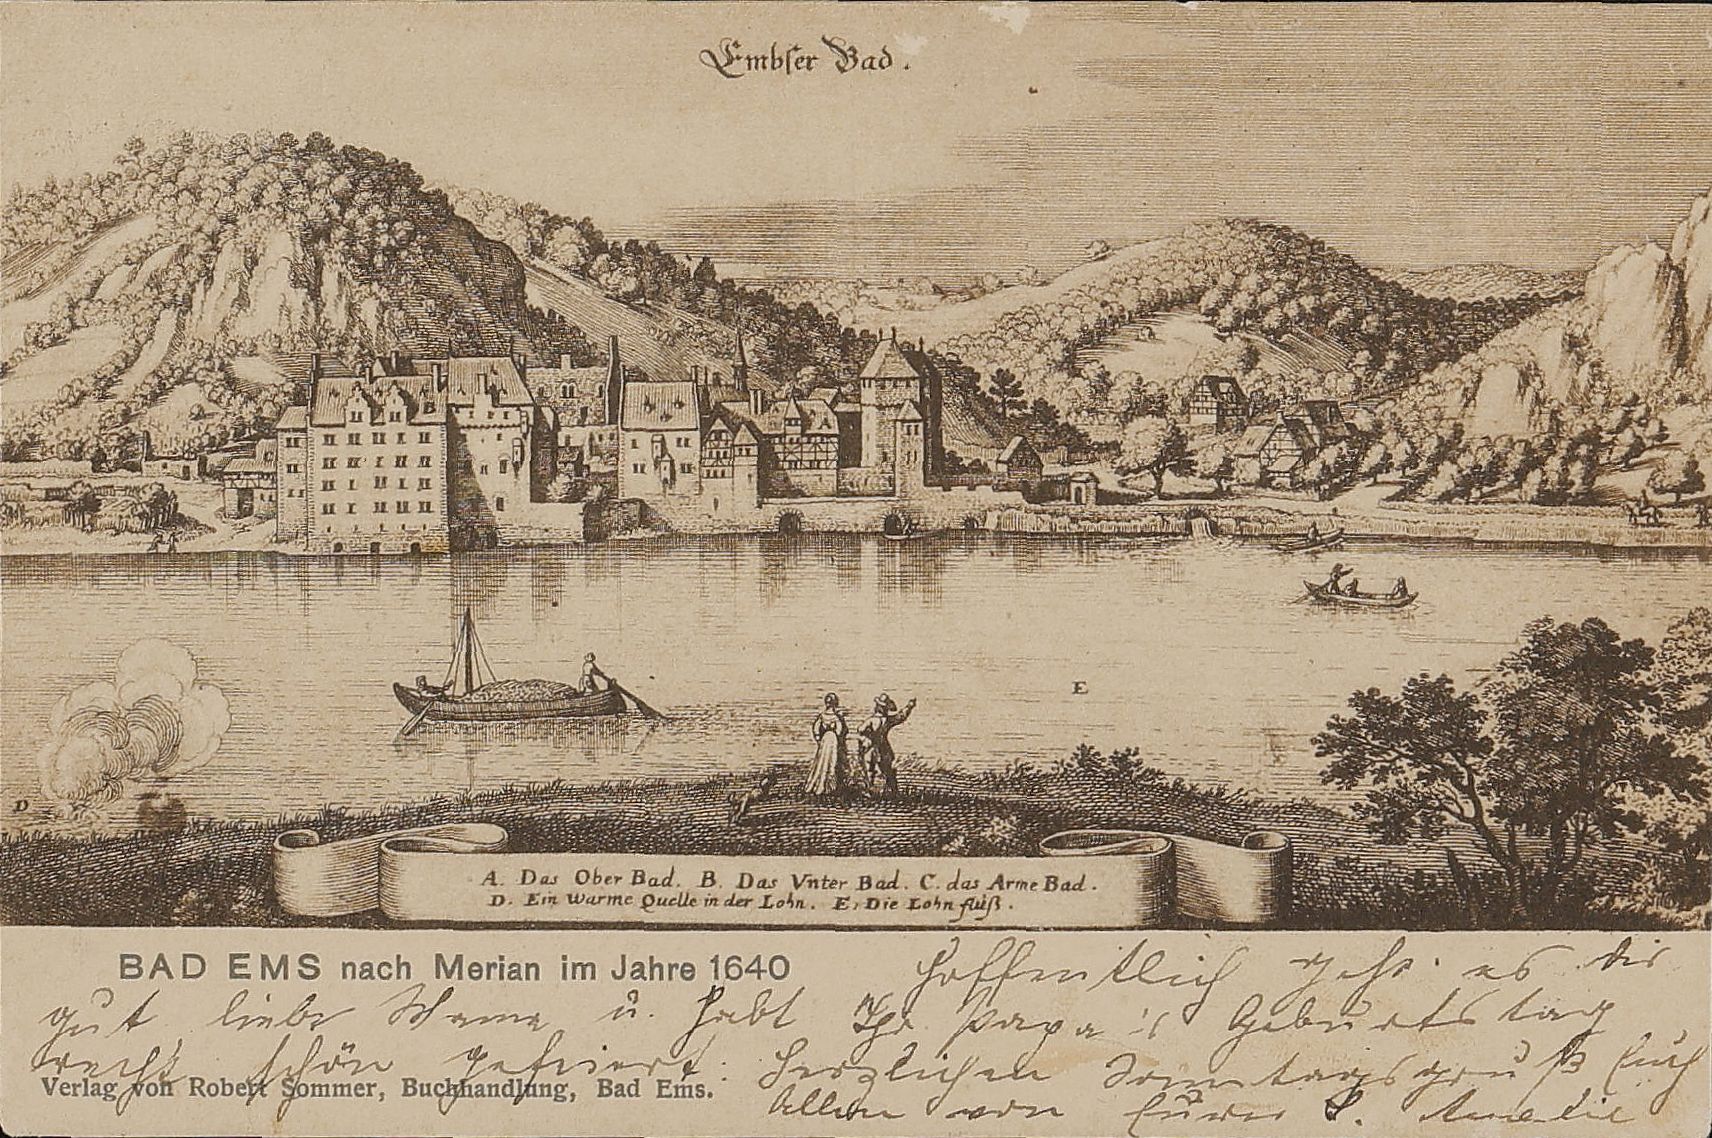 Embser Bad.
E
D
A. Das Ober Bad. B. Das Vnter Bad. C. das Arme Bad.
D. Ein Warme Quelle in der Lohn. E. Die Lohn fluß.
BAD EMS nach Merian im Jahre 1640
Hoffentlich geht es dir
gut liebe Mama u. habt Ihr Papa's Geburtstag
recht schön gefeiert. Herzlichen Sonntagsgruß Euch
Verlag von Robert Sommer, Buchhandlung, Bad Ems.
Allen von Eurer